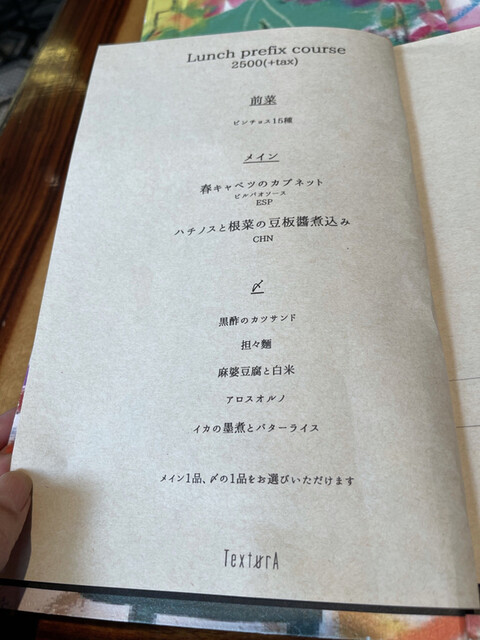 Lunch prefix course
2500(+tax)
前菜
ピンチョス15種
メイン
春キャベツのカプネット
ビルバオソース
ESP
ハチノスと根菜の豆板醬煮込み
CHN
〆
黒酢のカツサンド
担々麵
麻婆豆腐と白米
アロスオルノ
イカの墨煮とバターライス
メイン1品、〆の1品をお選びいただけます
TexturA